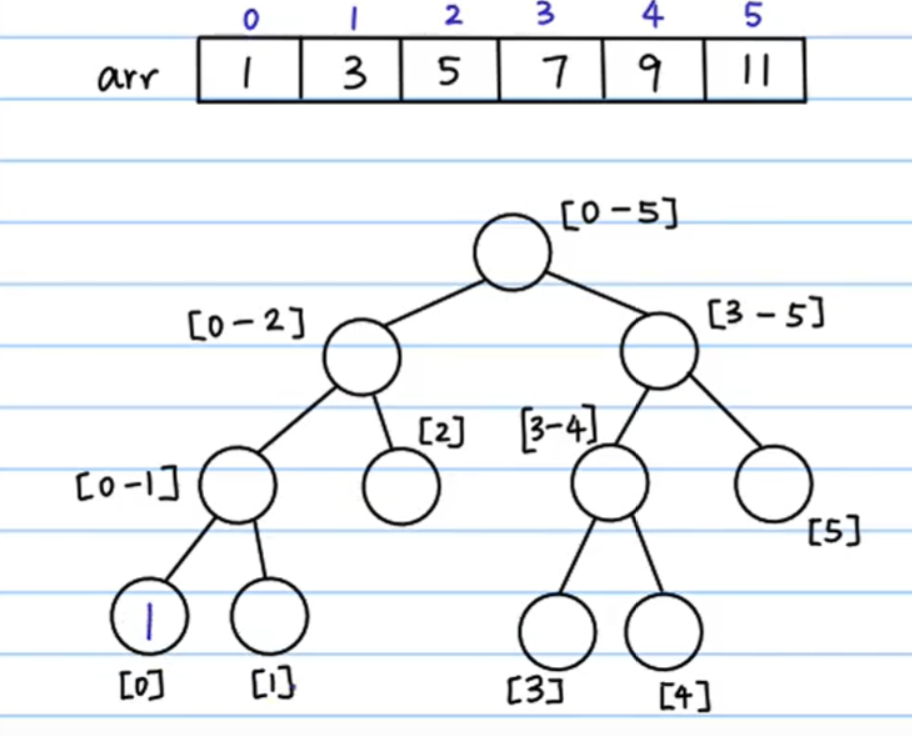 0 1 2 3 4 5
arr 1 3 5 7 9 11
[0-5]
[0-2] [3-5]
[2] [3-4]
[0-1] [5]
1
[0] [1] [3] [4]